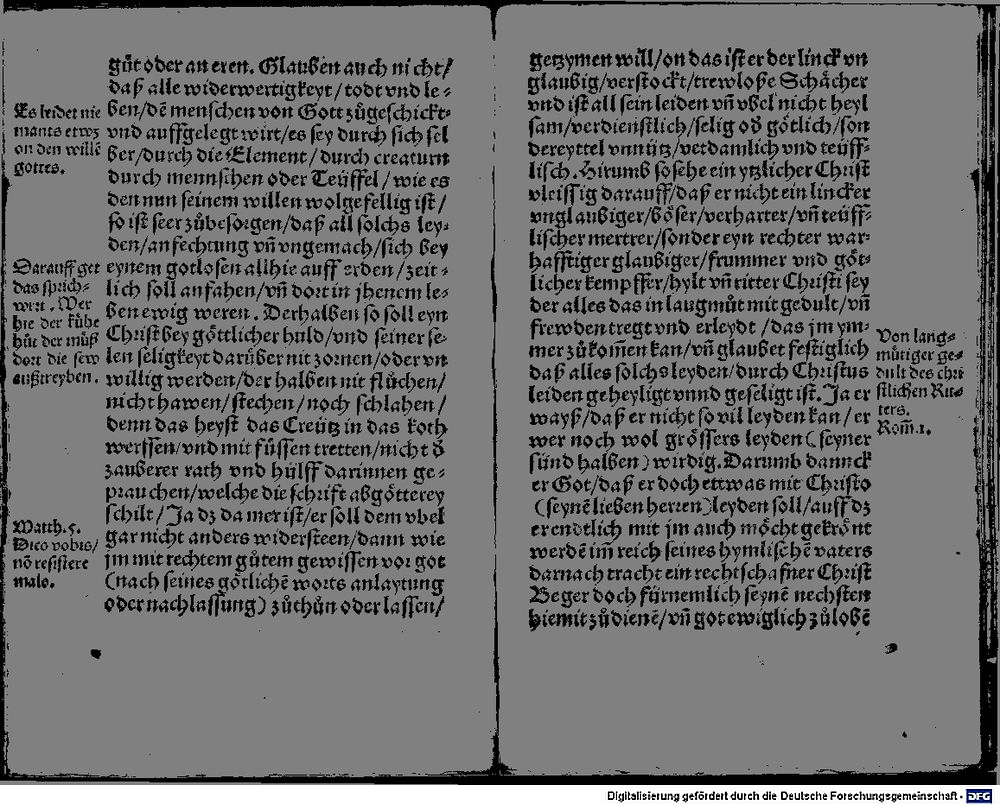 Es leidet nie
mants etwz
on den willẽ
gottes.
Darauff get
das sprich-
wort. Wer
hie der kůhe
hůt der můß
dort die sew
außtreyben.
Matth. 5.
Dico vobis/
nõ resistere
malo.
gůt oder an eren. Glauben auch nicht/
daß alle widerwertigkeyt/todt vnd le-
ben/dẽ menschen von Gott zůgeschickt
vnd auffgelegt wirt/es sey durch sich sel
ber/durch die Element/durch creaturn
durch mennschen oder Teüffel/wie es
den nun seinem willen wolgefellig ist/
so ist seer zůbesorgen/daß all solchs ley-
den/anfechtung vñ vngemach/sich bey
eynem gotlosen allhie auff erden/zeit-
lich soll anfahen/vñ dort in jhenem le-
ben ewig weren. Derhalben so soll eyn
Christ bey göttlicher huld/vnd seiner se-
len seligkeyt darüber nit zornen/oder vn
willig werden/der halben nit flůchen/
nicht hawen/stechen/noch schlahen/
denn das heyst das Creütz in das koth
werffen/vnd mit füssen tretten/nicht d̕
zauberer rath vnd hülff darinnen ge-
prauchen/welche die schrift abgötterey
schilt/Ja dz da mer ist/er soll dem vbel
gar nicht anders widersteen/dann wie
jm mit rechtem gůtem gewissen vor got
(nach seines götlichẽ worts anlaytung
oder nachlassung) zůthůn oder lassen/
getzymen will/on das ist er der linck vn
glaubig/verstockt/trewloße Schächer
vnd ist all sein leiden vñ vbel nicht heyl
sam/verdienstlich/selig od̕ götlich/son
dereyttel vnnütz/verdamlich vnd teüff-
lisch. Hirumb so sehe ein ytzlicher Christ
vleissig darauff/daß er nicht ein lincker
vnglaubiger/böser/verharter/vñ teüff-
lischer mertrer/sonder eyn rechter war-
hafftiger glaubiger/frummer vnd göt-
licher kempffer/hylt vñ ritter Christi sey
der alles das in laugmůt mit gedult/vñ
frewden tregt vnd erleydt/das jm ym-
mer zůkom̃en kan/vñ glaubet festiglich
daß alles solchs leyden/durch Christus
leiden geheyligt vnnd geseligt ist. Ja er
wayß/daß er nicht so vil leyden kan/er
wer noch wol grössers leyden (seyner
sünd halben) wirdig. Darumb dannck
er Got/daß er doch ettwas mit Christo
(seynẽ lieben herren)leyden soll/auff dz
er endtlich mit jm auch möcht gekrönt
werdẽ im̃ reich seines hymlischẽ vaters
darnach tracht ein rechtschafner Christ
Beger doch fürnemlich seynẽ nechsten
hiemit zů dienẽ/vñ got ewiglich zůlobẽ
Von lang-
mütiger ge-
dult des chri
stlichen Rit-
ters.
Rom̃. 1.
Digitalisierung gefördert durch die Deutsche Forschungsgemeinschaft - DFG